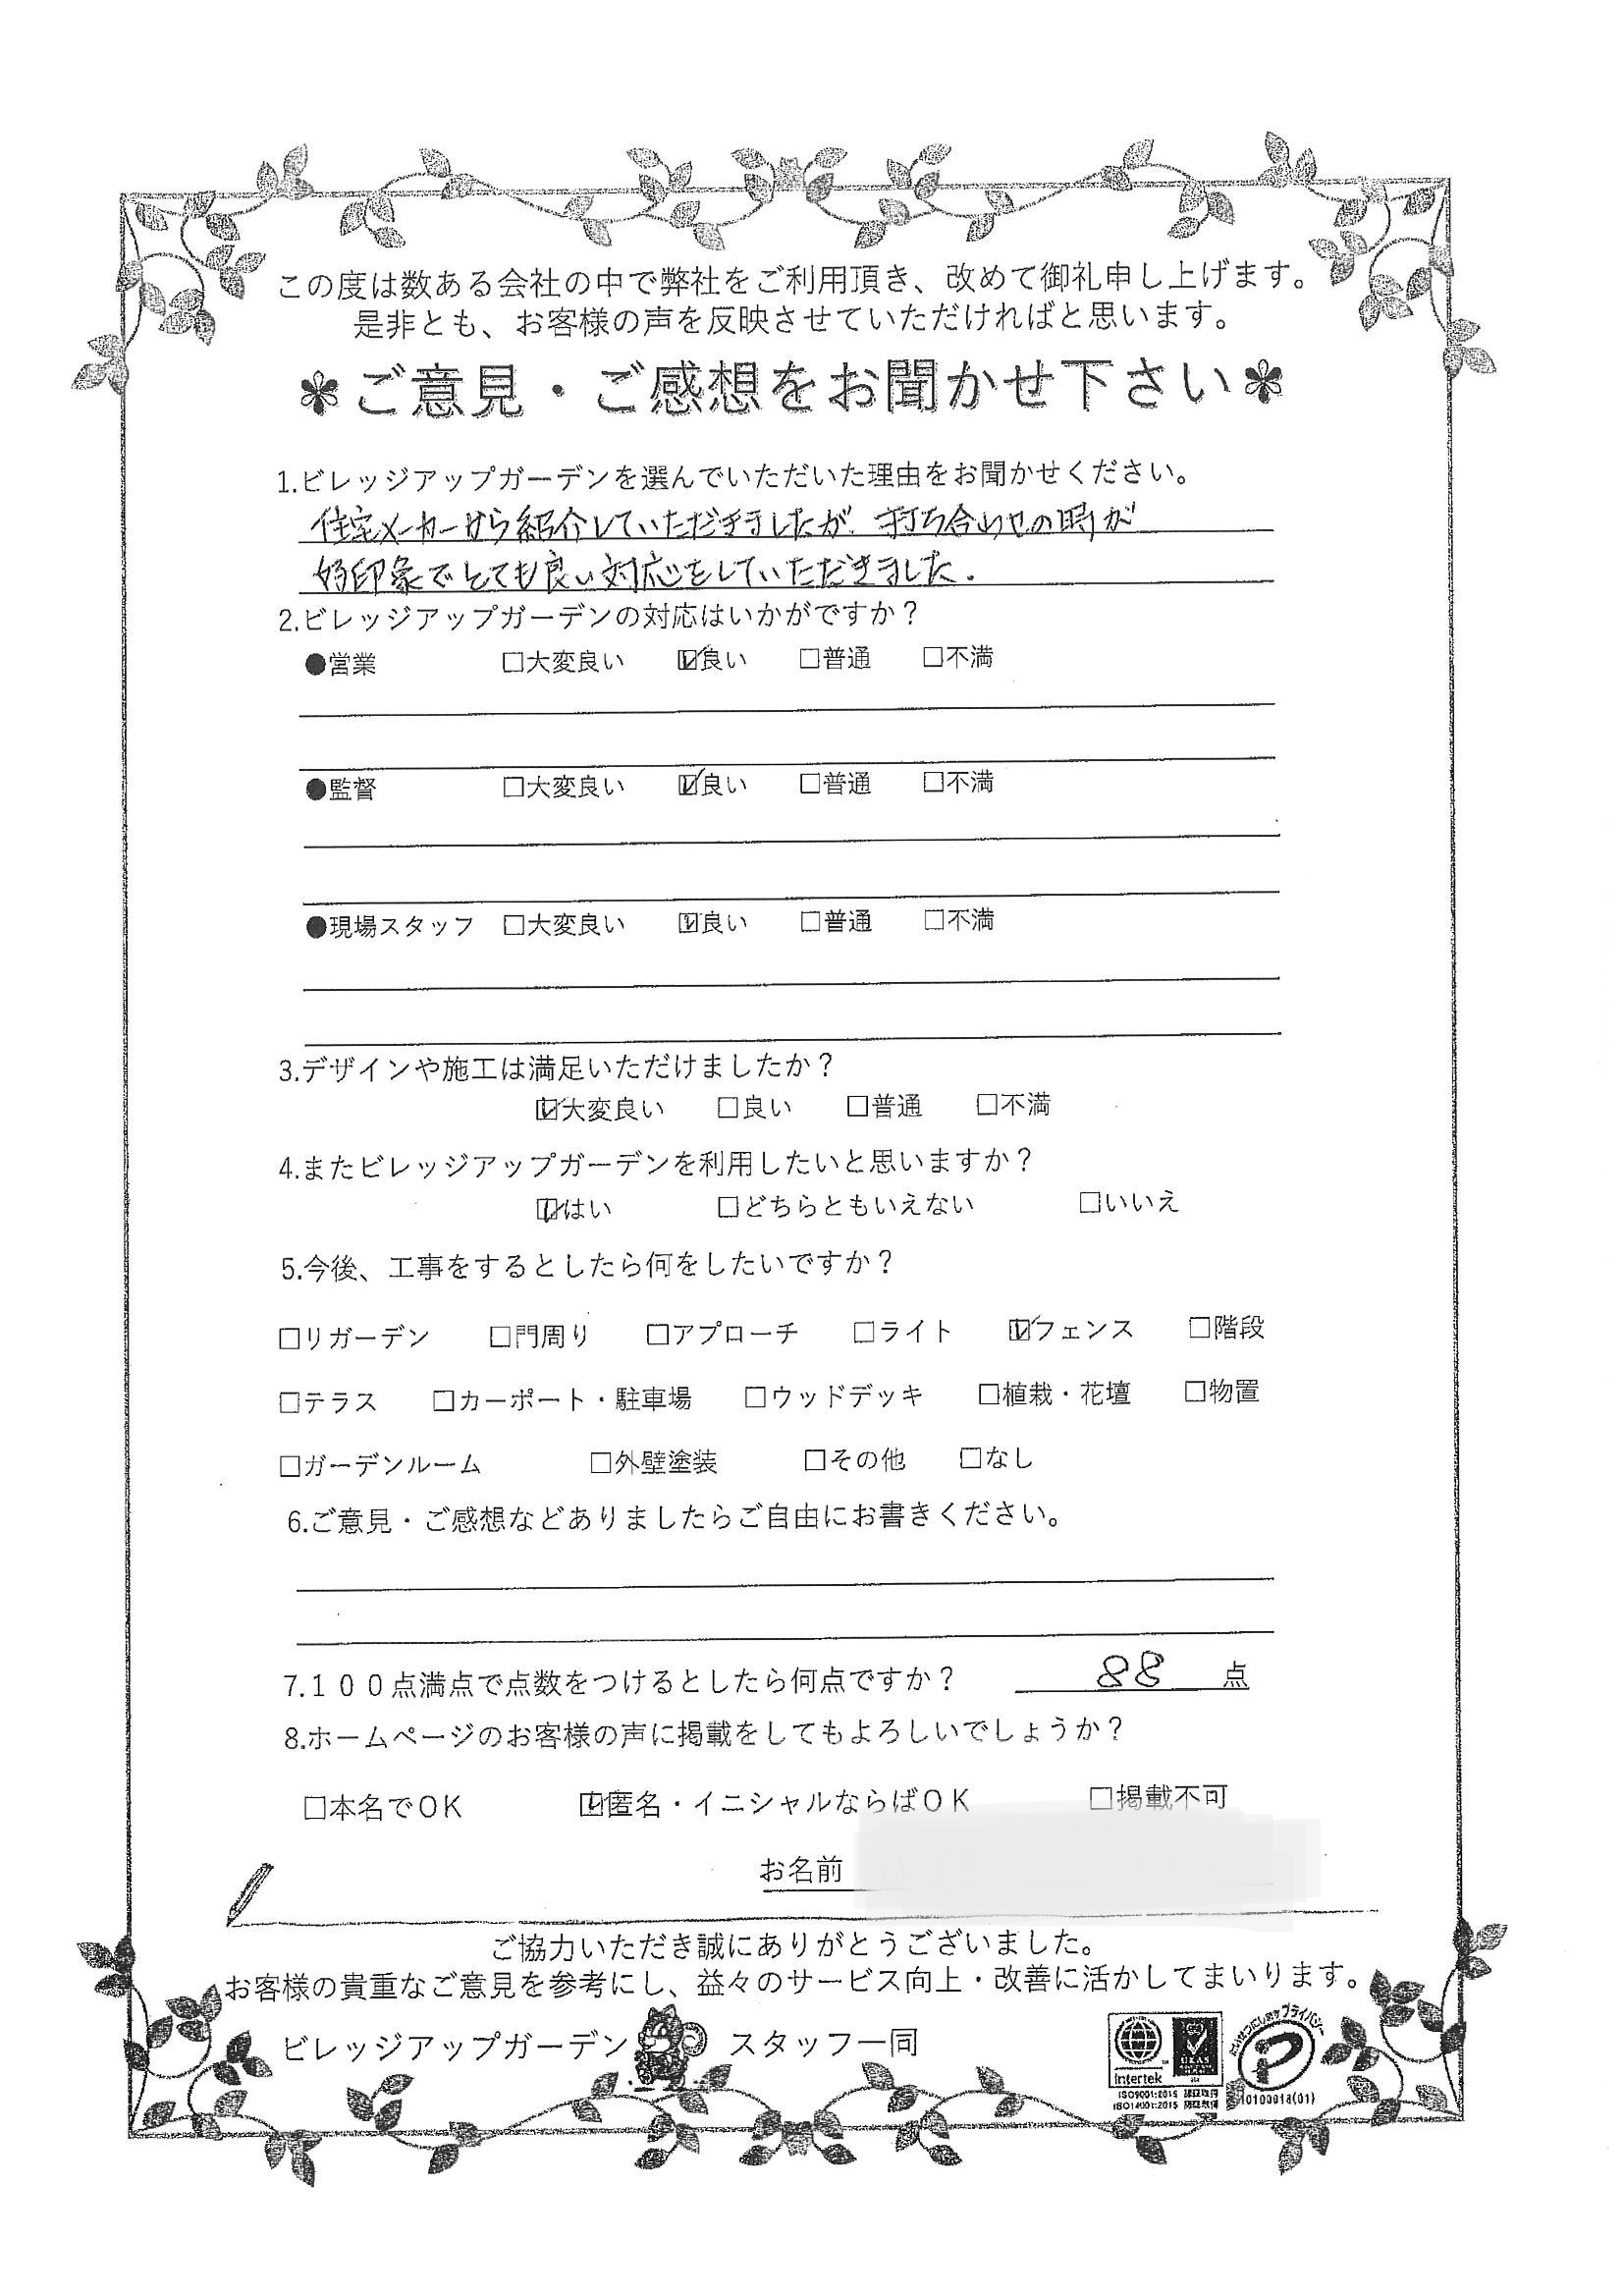 この度は数ある会社の中で弊社をご利用頂き、改めて御礼申し上げます。
是非とも、お客様の声を反映させていただければと思います。
✽ご意見・ご感想をお聞かせ下さい✽
1.ビレッジアップガーデンを選んでいただいた理由をお聞かせください。
住宅メーカーから紹介していただきましたが、打ち合わせの時が
好印象でとても良い対応をしていただきました.
2.ビレッジアップガーデンの対応はいかがですか？
●営業 □大変良い ☑良い □普通 □不満
●監督 □大変良い ☑良い □普通 □不満
●現場スタッフ □大変良い ☑良い □普通 □不満
3.デザインや施工は満足いただけましたか？
☑大変良い □良い □普通 □不満
4.またビレッジアップガーデンを利用したいと思いますか？
☑はい □どちらともいえない □いいえ
5.今後、工事をするとしたら何をしたいですか？
□リガーデン □門周り □アプローチ □ライト ☑フェンス □階段
□テラス □カーポート・駐車場 □ウッドデッキ □植栽・花壇 □物置
□ガーデンルーム □外壁塗装 □その他 □なし
6.ご意見・ご感想などありましたらご自由にお書きください。
7.１００点満点で点数をつけるとしたら何点ですか？ 88 点
8.ホームページのお客様の声に掲載をしてもよろしいでしょうか？
□本名でＯＫ ☑匿名・イニシャルならばＯＫ □掲載不可
お名前
ご協力いただき誠にありがとうございました。
お客様の貴重なご意見を参考にし、益々のサービス向上・改善に活かしてまいります。
ビレッジアップガーデン スタッフ一同
UKAS
intertek
ISO9001:2015 認証取得
ISO14001:2015 認証取得
たいせつにしますプライバシー
10190018(01)